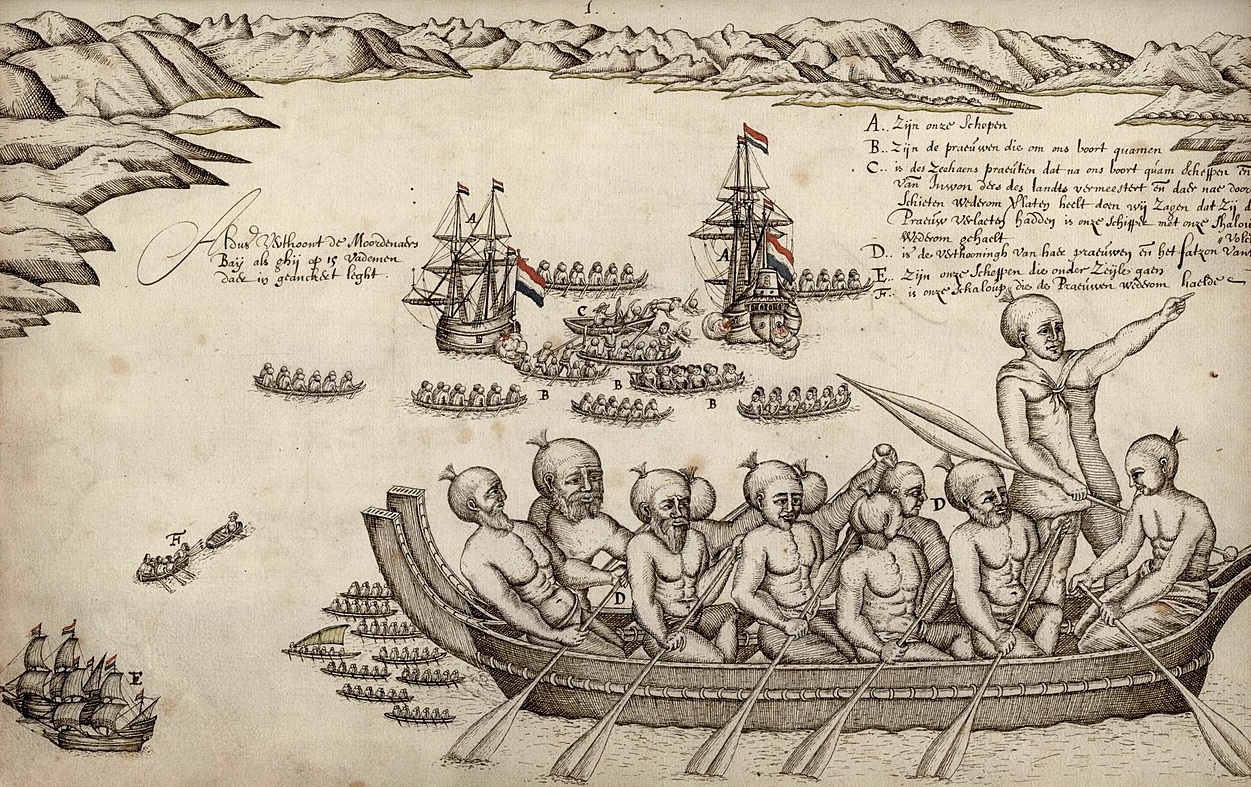 1.
A.. Zijn onze Schepen
B.. Zijn de praeuwen die om ons boort quamen
C.. is des Zeehaens praeutien dat na ons boort quam Scheppen en
van Inwon ders des landts vermeestert en daer nae door
Schieten wederom Verlaten heeft doen wij Zagen dat Zij d
Praeuw Verlaeten hadden is onze Schipper met onze Chalou
Wederom gehaelt
D.. is de Verthooningh van haer praeuwen en het fatzon van
E.. Zijn onze Schepen die onder Zeijle gaen
F.. is onze Schaloup die de Praeuwen wederom haelde
Aldus Verthoont de Moordenaers
Baij als ghij op 15 Vademen
daer in geanckert leght
A
A
C
B
B
B
B
D
D
F
E